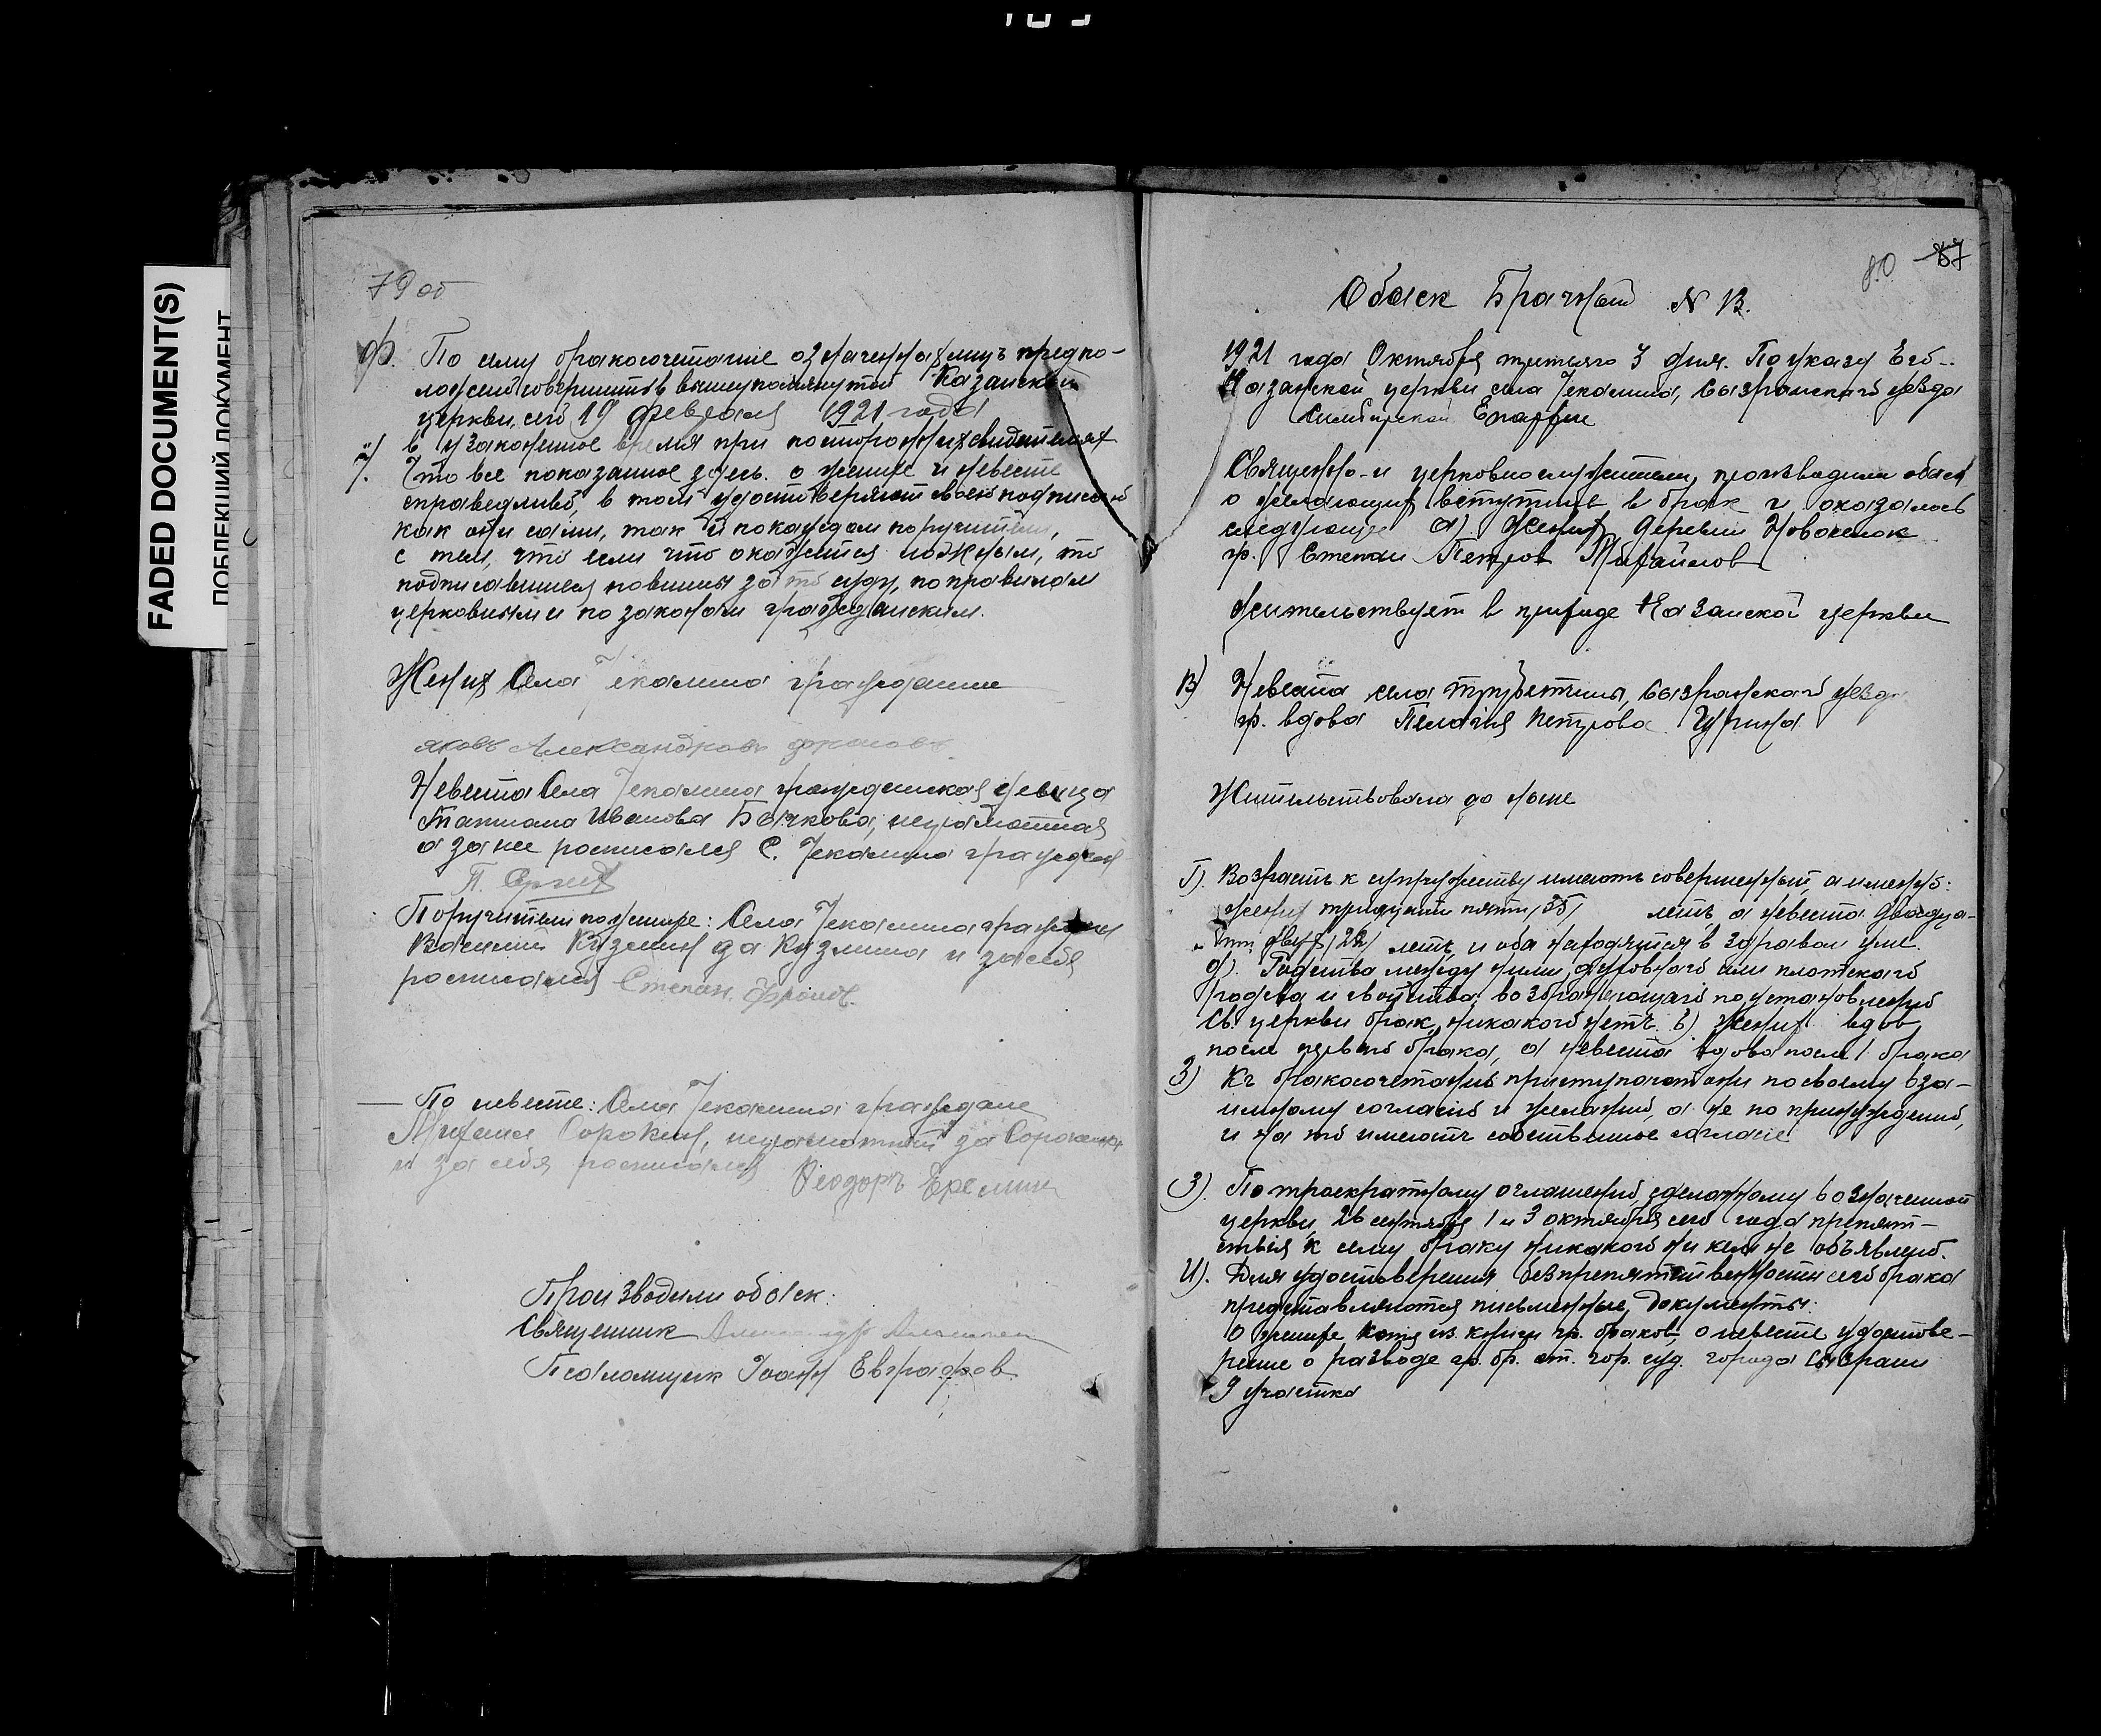 FADED DOCUMENT(S)
ПОБЛЕКШИЙ ДОКУМЕНТ
79 об
Ф. По сему бракосочетание означенных лиц предпо-
ложено совершить в вышеупомянутой Казанской
церкви, сего 19 февраля 1921 года
в узаконенное время при посторонних свидетелях
Что все показанное здесь о женихе и невесте
справедливо, в том удостоверяют своею подписью
как они сами, так и по каждом поручители,
с тем, что если что окажется ложным, то
подписавшиеся повинны за то суду, по правилам
церковным и по законам гражданским.
Жених Села Чекалина гражданин
яковъ Александровъ фроловъ
Невеста Села Чекалина гражданская девица
Татиана Иванова Бочкова, неграмотная
а за нее росписался С. Чекалина граждан
П. Сергеев
Поручители по женихе: Села Чекалина граждане
Василий Кузмин да Кузмина и за себя
росписался Степан Фролов.
— По невесте: Села Чекалина граждане
Михаил Сорокин, неграмотный за Сорокина
и за себя росписался Феодоръ Еремин
Производили обыск:
Священник
Псаломщик Иоанн Евграфов
80 87
Обыск Брачный N 13.
1921 года Октября третьего 3 дня. По указу Его..
Казанской церкви села Чекалина, Сызранскаго уезда
Симбирской Епархии
Священно-и церковнослужители, производили обыск
о желающих вступить в брак и оказалось
следующее а) Жених деревни Новоселок
гр. Степан Петров Михайлов
Жительствует в приходе Казанской церкви
В) Невеста села Трубетчины, Сызранскаго уезда
гр. вдова Пелагия Петрова Чурина
Жительствовала до ныне
Г). Возрастъ к супружеству имеютъ совершенный, а именно:
жених тридцати пяти /35/ летъ, а невеста двадца-
ти двух /22/ летъ, и оба находятся в здравом уме.
д). Родства между ними духовнаго или плотскаго
родства и свойства, возбраняющаго по установлению
Св. церкви брак, никакого нетъ. 6) Жених вдов
после перваго брака, а невеста вдова после 1 брака
З) Къ бракосочетанию приступают они по своему вза-
имному согласию и желанию, а не по принуждению,
и на то имеютъ собственное согласие
З). По троекратному оглашению, зделанному в означенной
церкви 26 сентября 1 и 3 октября сего года препят-
ствия к сему браку никакого ни кем не объявлено.
И). Для удостоверения безпрепятственности сего брака
представляются письменные документы:
О женихе копия из книги гр. браков, о невесте удостове-
рение о разводе гр. бр. ст. гор. суд. города Сызрани
9 участка